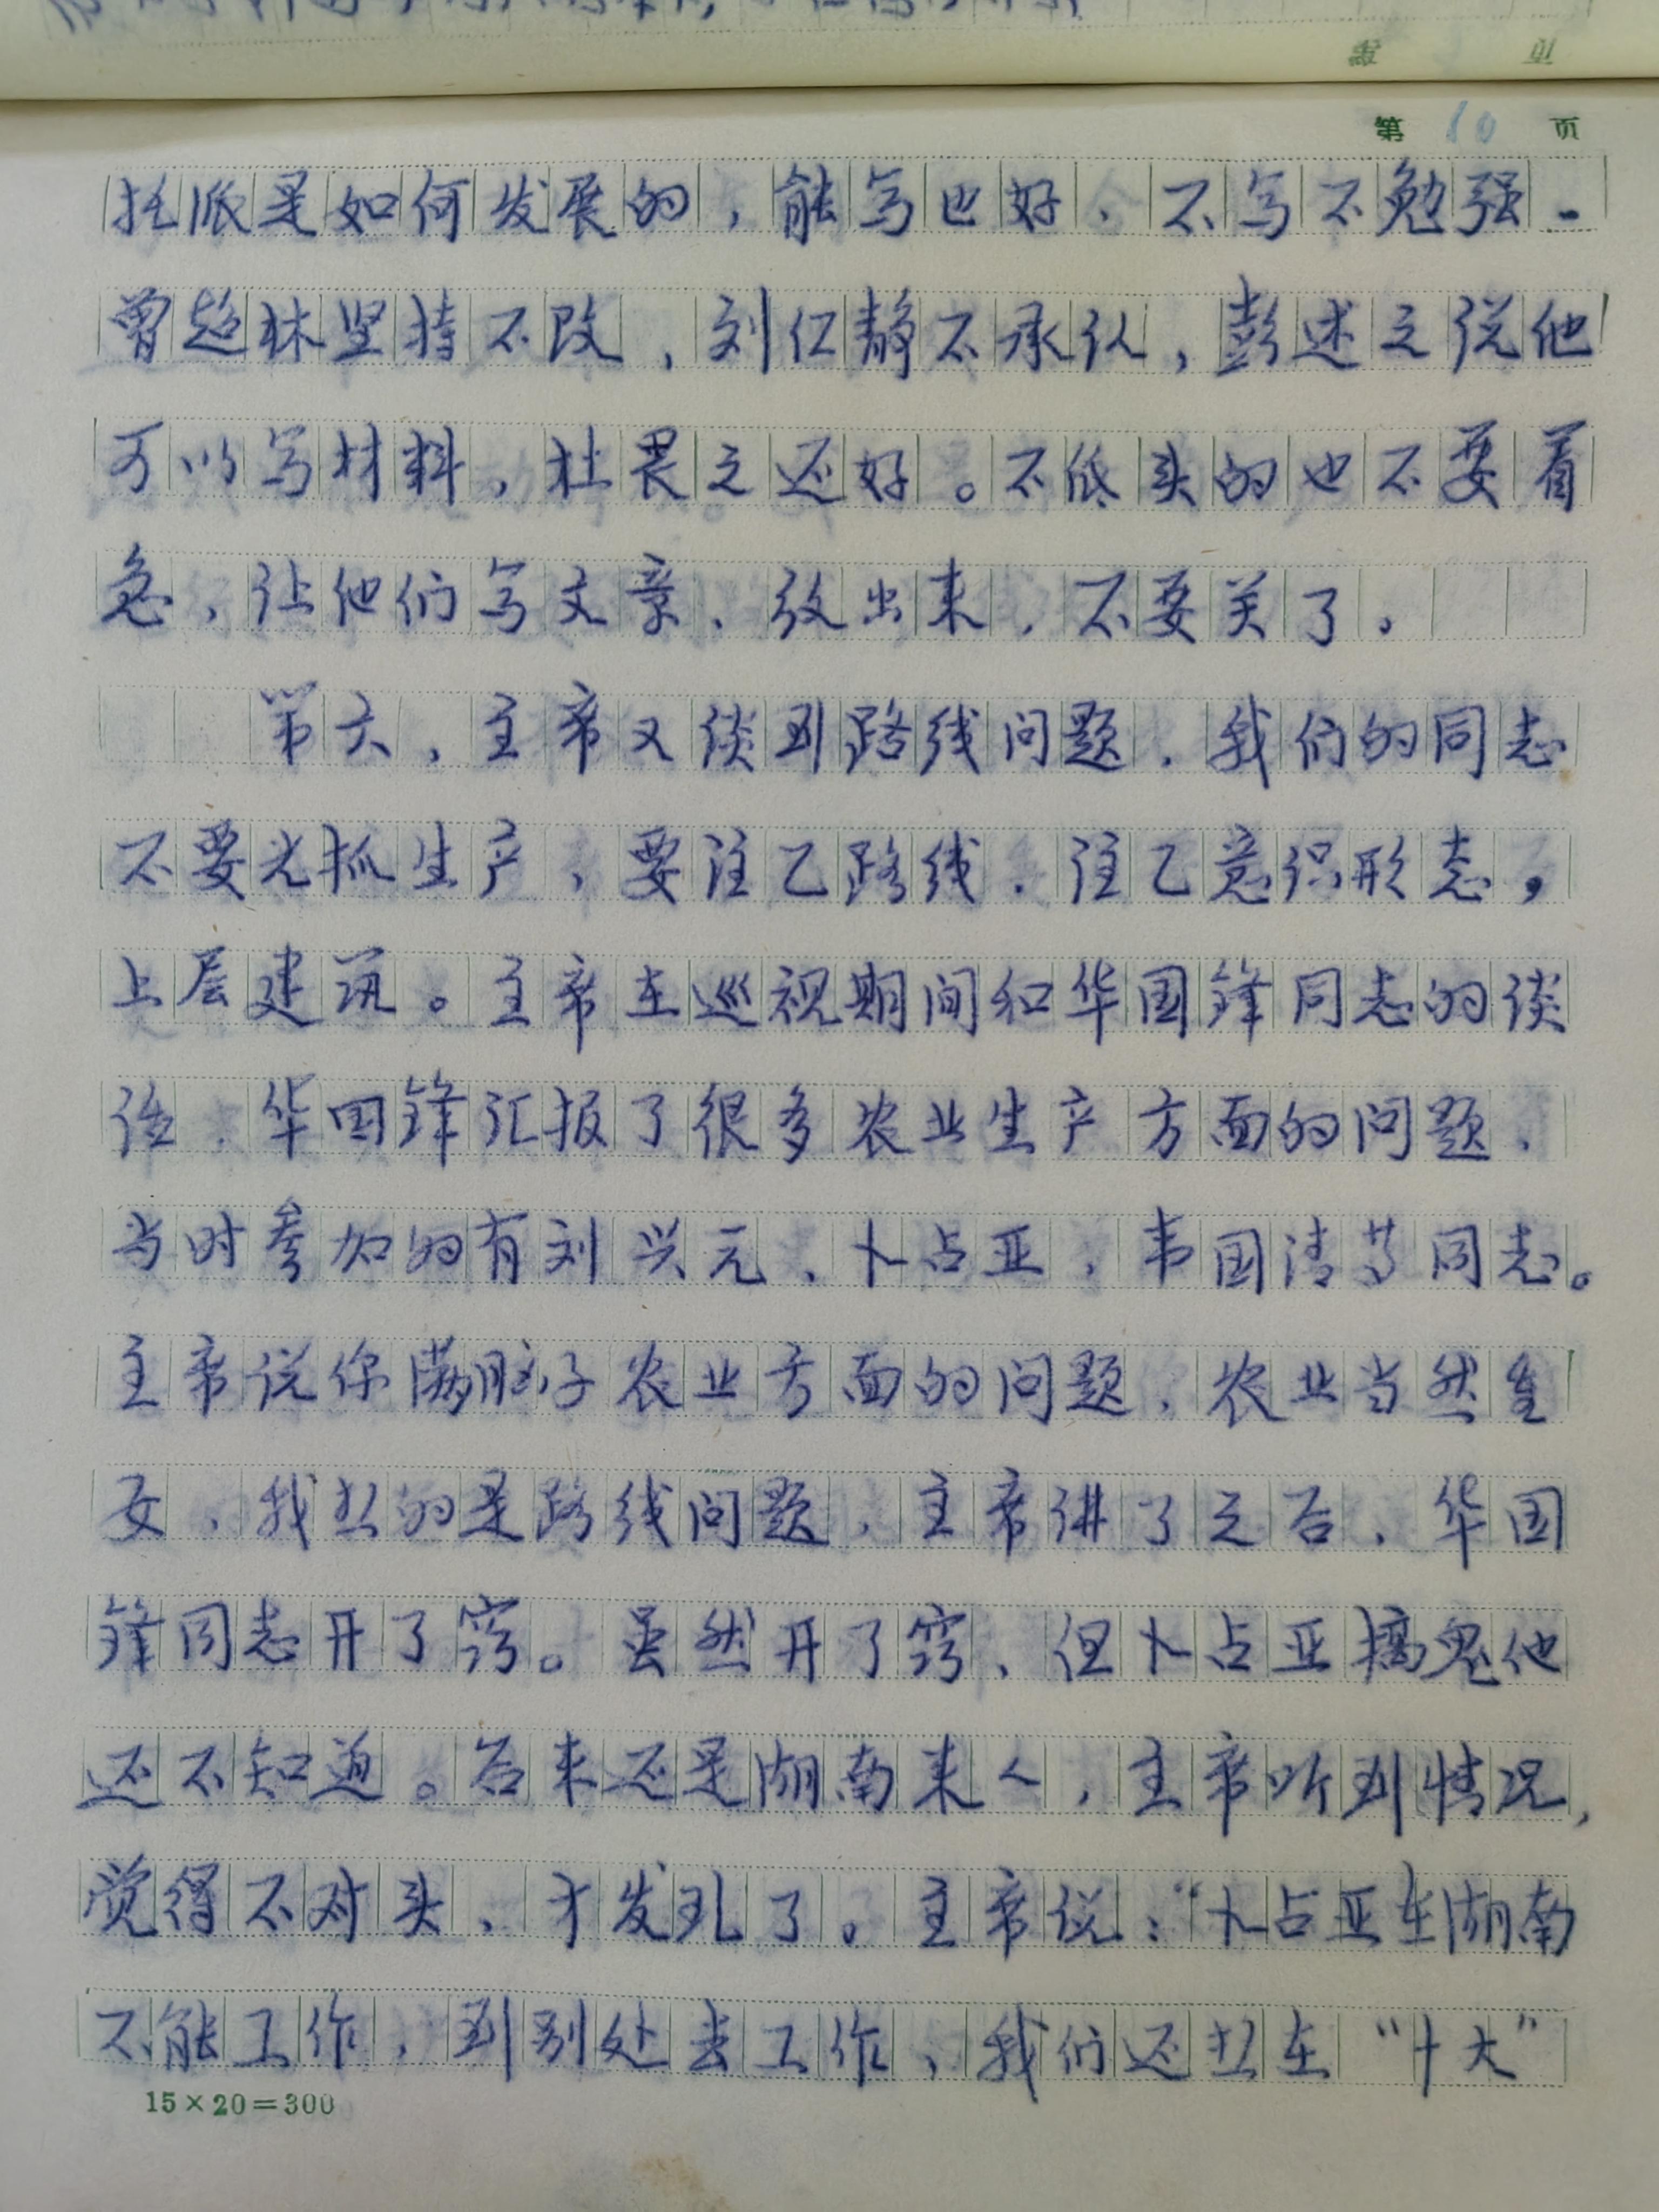 第 10 页
托派是如何发展的，能写也好，不写不勉强．
曾超林坚持不改，刘仁静不承认，彭述之说他
可以写材料，杜畏之还好。不低头的也不要着
急，让他们写文章、放出来，不要关了。
第六，主席又谈到路线问题，我们的同志
不要光抓生产，要注乙路线，注乙意识形态，
上层建筑。主席在巡视期间和华国锋同志的谈
话，华国锋汇报了很多农业生产方面的问题，
当时参加的有刘兴元、卜占亚，韦国清等同志。
主席说你满脑子农业方面的问题，农业当然重
要，我想的是路线问题，主席讲了之后，华国
锋同志开了窍。虽然开了窍，但卜占亚搞鬼他
还不知道。后来还是湖南来人，主席听到情况，
觉得不对头，才发现了。主席说：“卜占亚在湖南
不能工作，到别处去工作，我们还想在“十大”
15×20=300